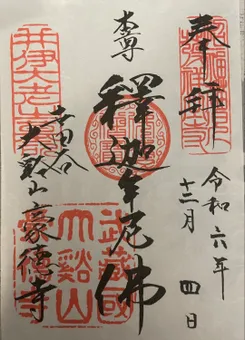 奉拝
令和六年
十二月 四日
本尊
釋迦牟尼佛
世田谷
大谿山豪徳寺
武蔵國
大谿山
井伊大老墓所